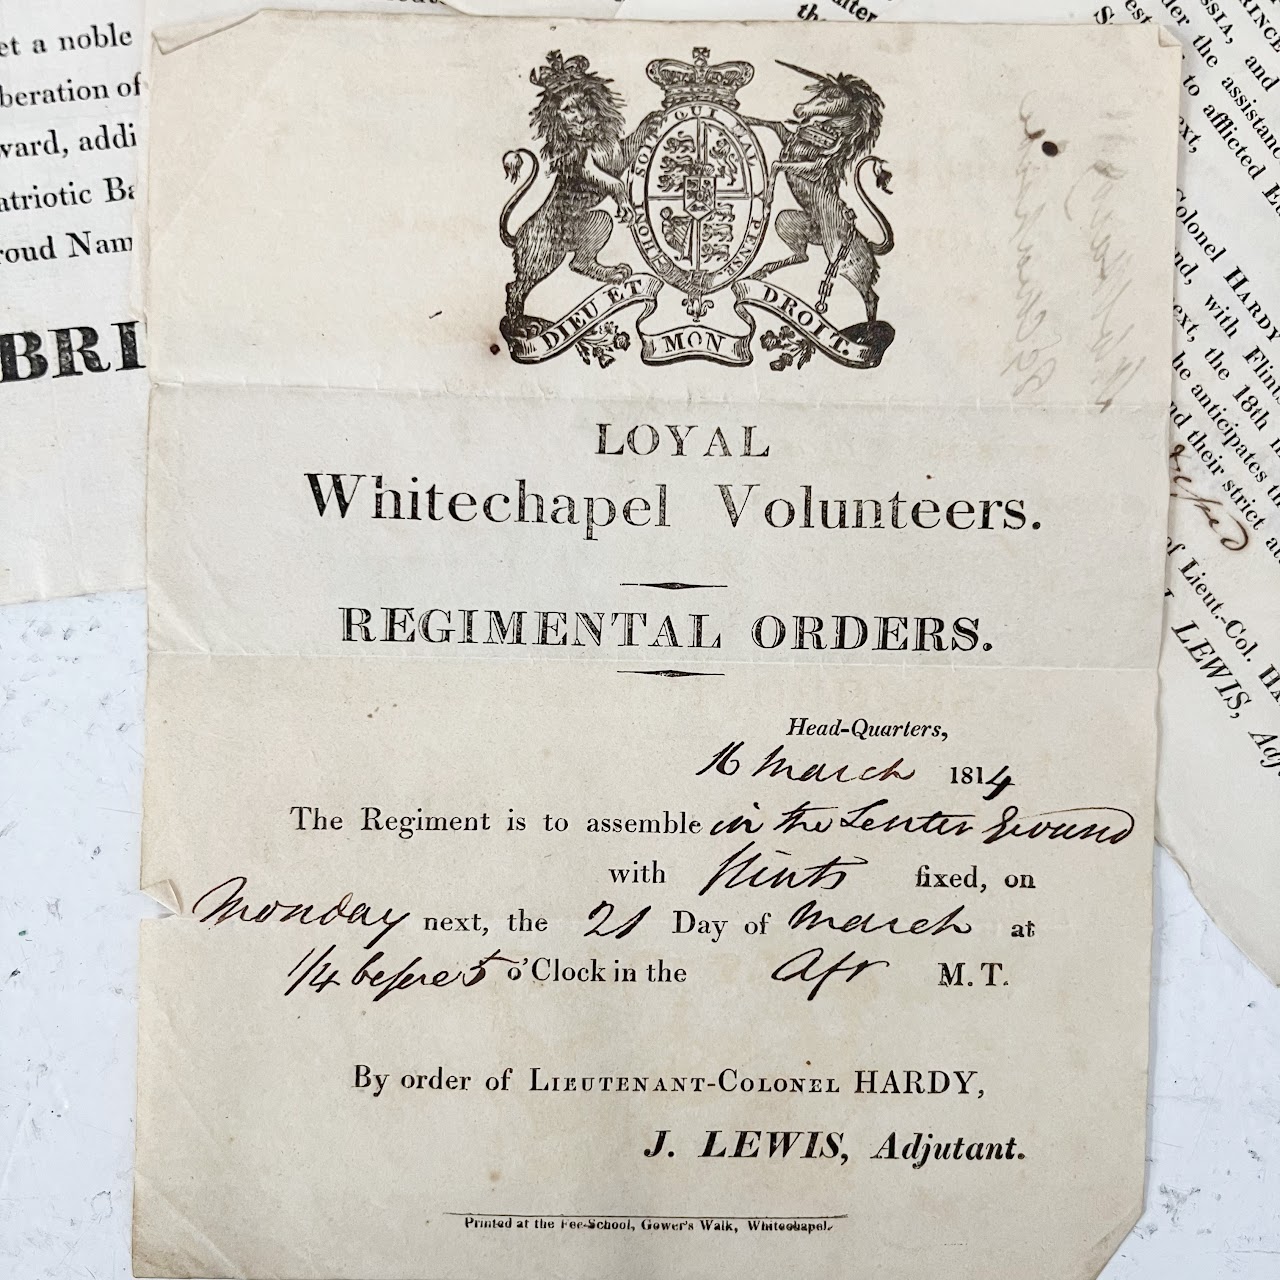 et a noble
beration of
ward, addi
atriotic Ba
roud Nam
BRI
HONI SOIT QUI MAL Y PENSE
DIEU ET MON DROIT.
LOYAL
Whitechapel Volunteers.
REGIMENTAL ORDERS.
Head-Quarters,
16 March 1814
The Regiment is to assemble in the Tenter Ground
with Flints fixed, on
Monday next, the 21 Day of March at
1/4 before 5 o'Clock in the Aft M. T.
By order of LIEUTENANT-COLONEL HARDY,
J. LEWIS, Adjutant.
Printed at the Fee-School, Gower's Walk, Whitechapel.
SSIA, and
the assistanc
to afflicted E
ext,
Colonel HARDY
nd, with Flints
ext, the 18th in
he anticipates th
nd their strict at
of Lieut.-Col. HA
J. LEWIS, Adj